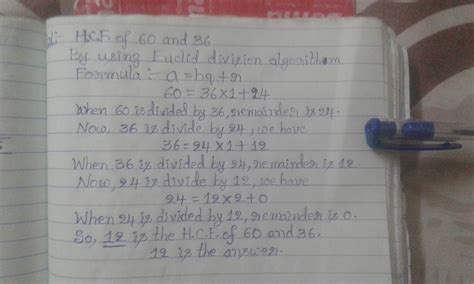 H.C.F. of 60 and 36
By using Euclid division algorithom
Formula:- a=bq+r
60=36×1+24
When 60 is divided by 36, remainder is 24.
Now, 36 is divide by 24, we have
36=24×1+12
When 36 is divided by 24, remainder is 12.
Now, 24 is divide by 12, we have
24=12×2+0
When 24 is divided by 12, remainder is 0.
So, 12 is the H.C.F. of 60 and 36.
12 is the answer.